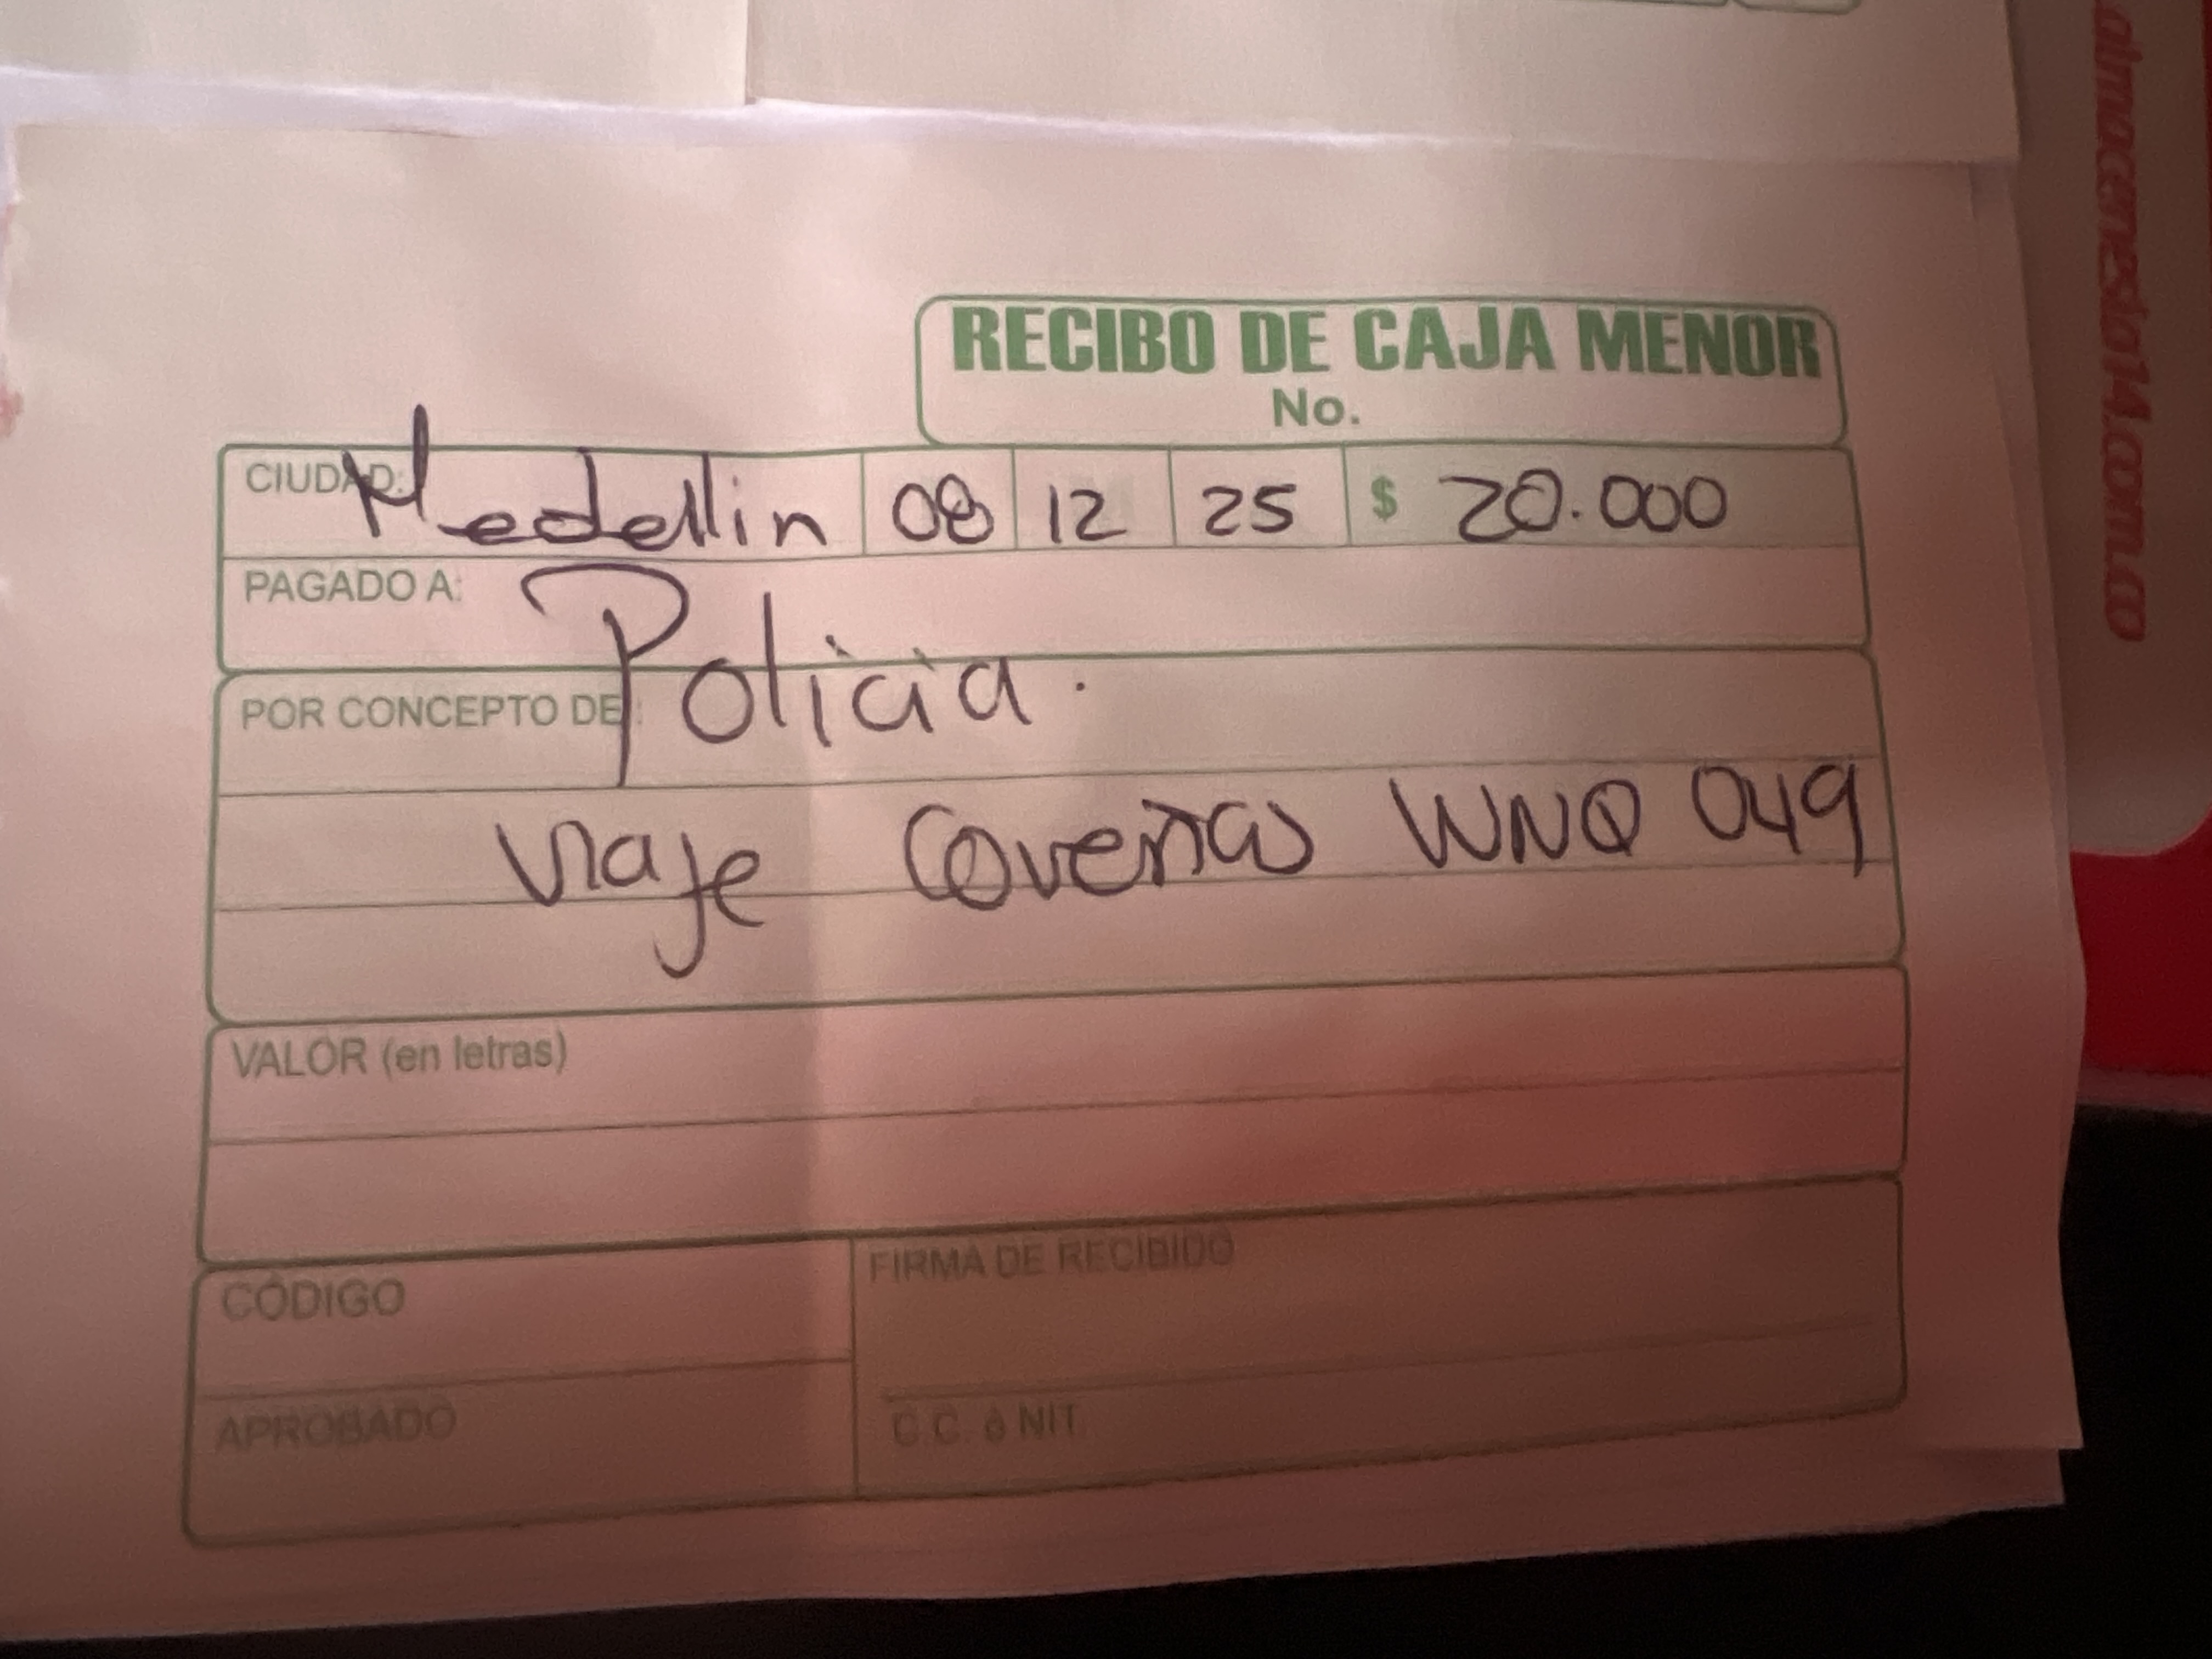 RECIBO DE CAJA MENOR
No.
CIUDAD: Medellin 08 12 25 $ 20.000
PAGADO A:
Policia.
POR CONCEPTO DE:
viaje Coveñas WNQ 049
VALOR (en letras)
CÓDIGO
FIRMA DE RECIBIDO
APROBADO
C.C. ó NIT.